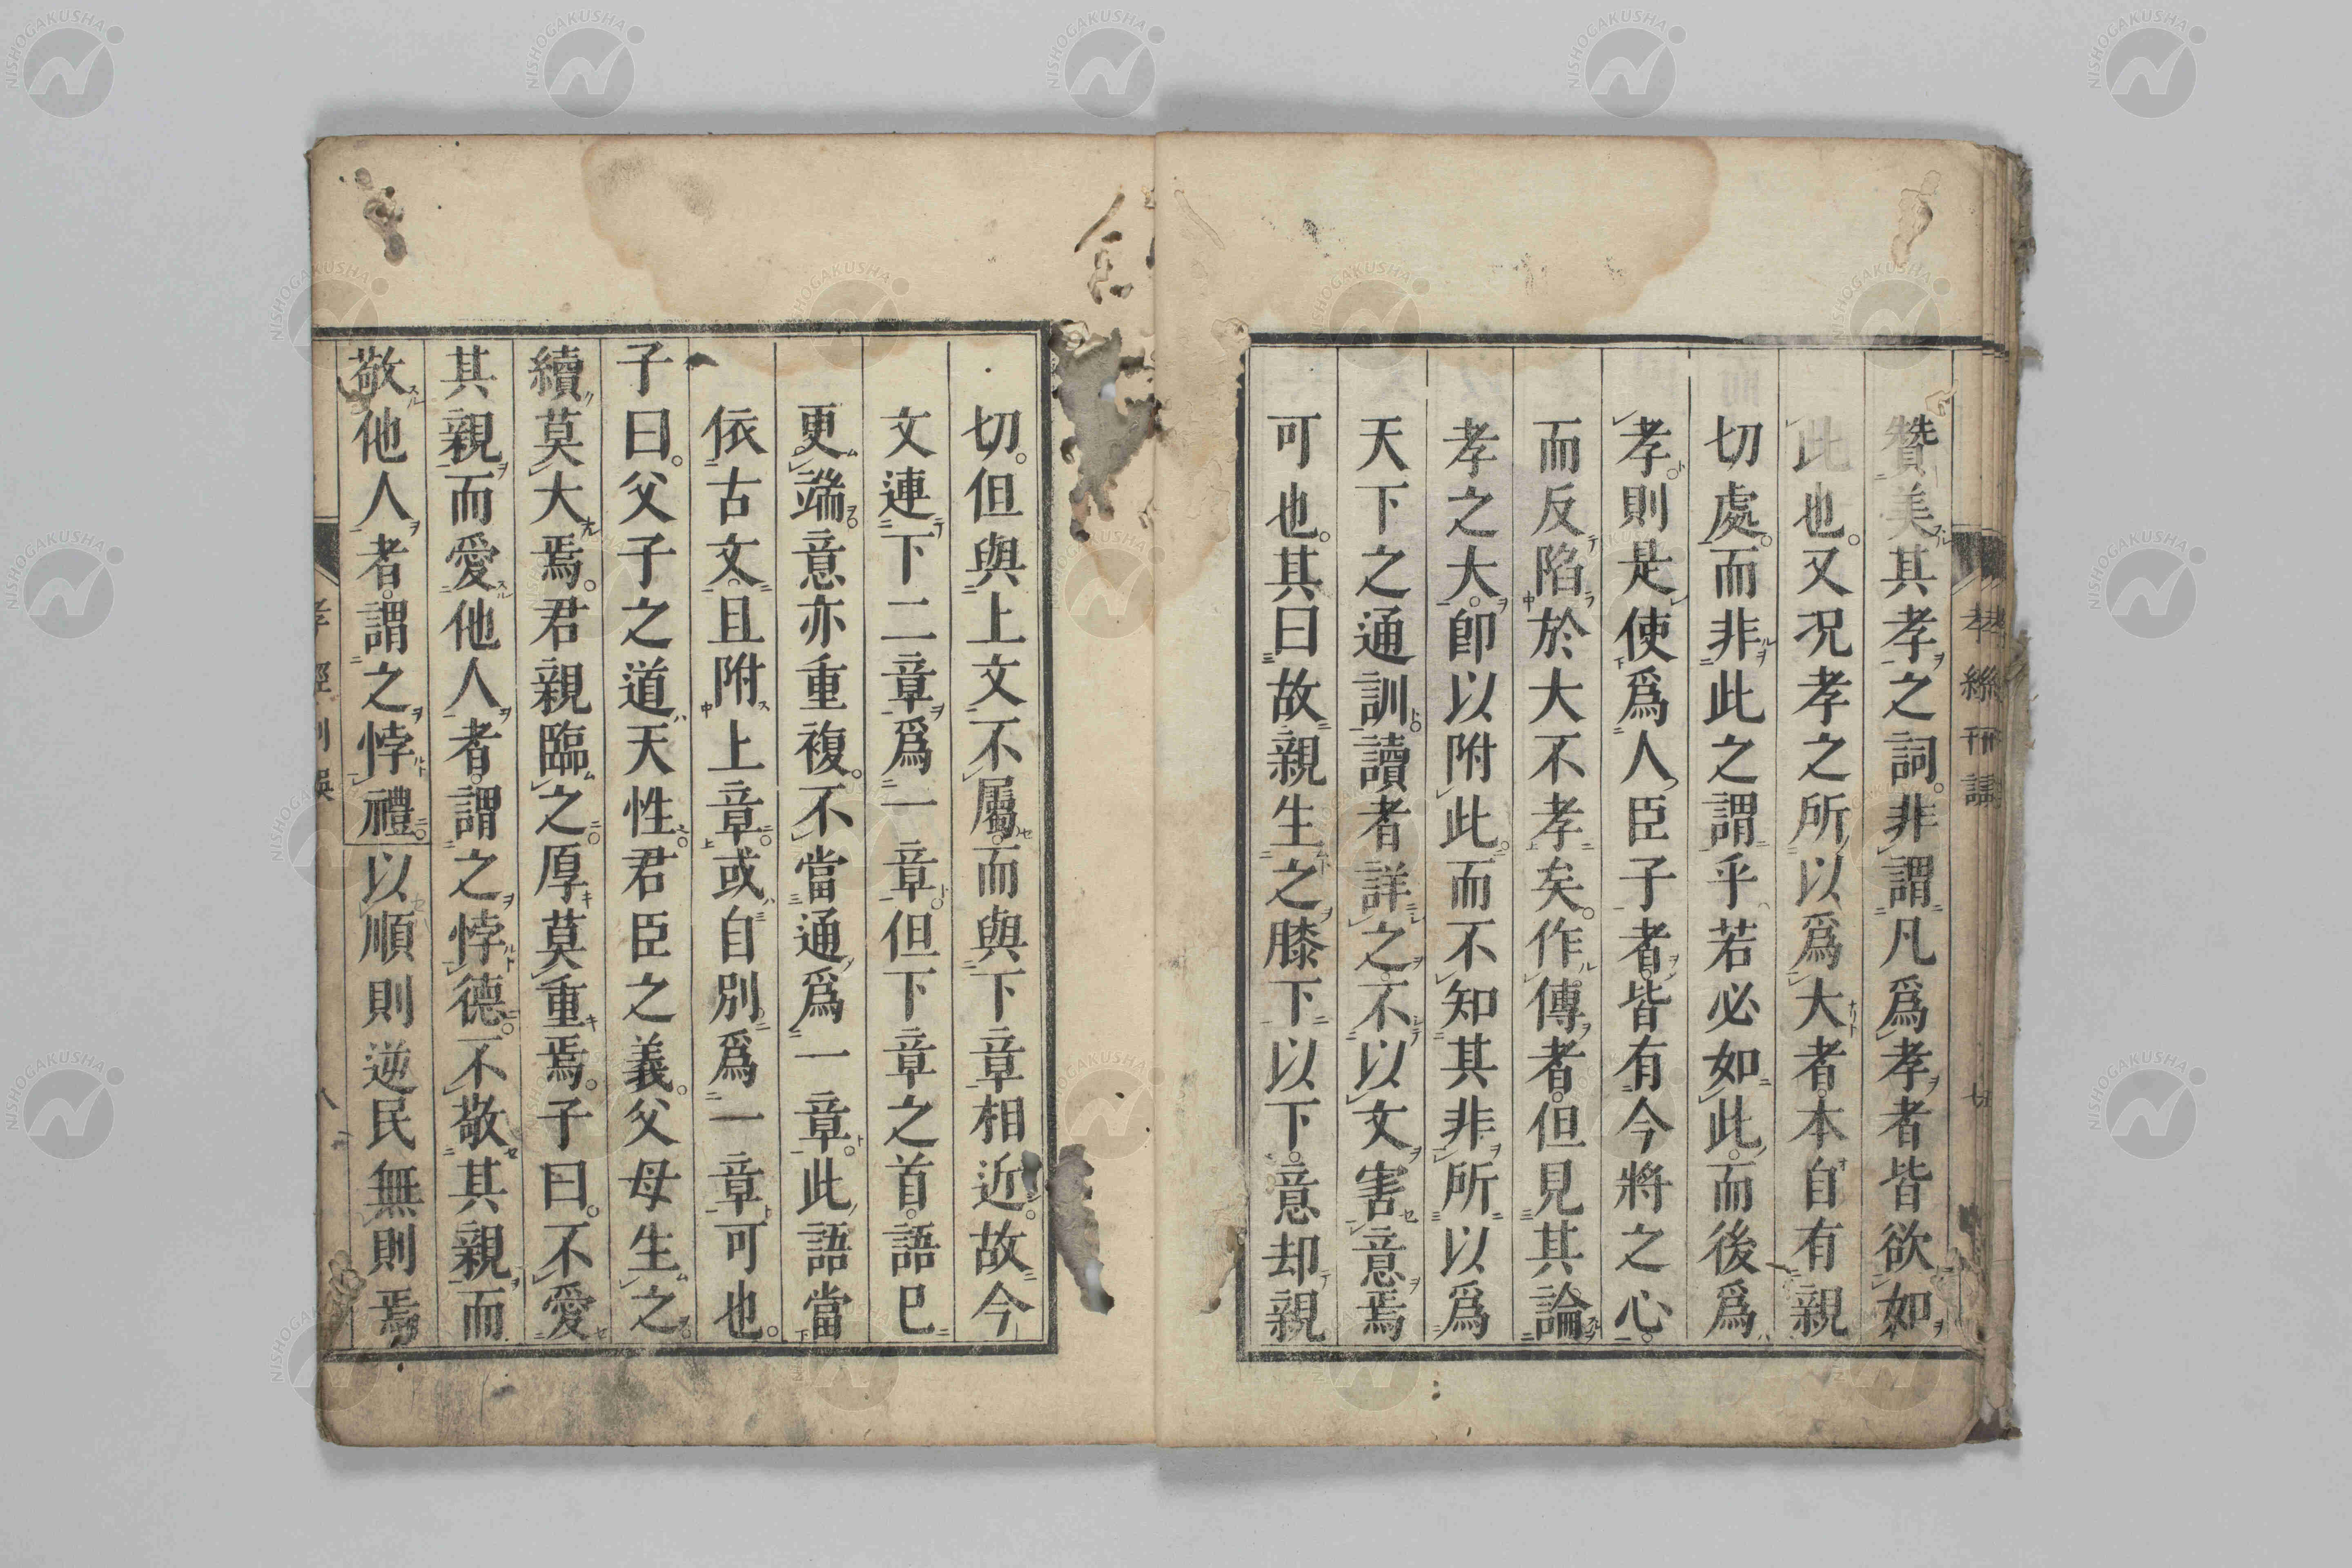 贊美其孝之詞。非謂凡爲孝者皆欲如
此也。又況孝之所以爲大者。本自有親
切處。而非此之謂乎若必如此。而後爲
孝。則是使爲人臣子者。皆有今將之心。
而反陷於大不孝矣。作傳者。但見其論
孝之大。即以附此。而不知其非所以爲
天下之通訓。讀者詳之。不以文害意焉
可也。其曰故親生之膝下以下。意却親
切。但與上文不屬。而與下章相近。故今
文連下二章爲一章。但下章之首。語已
更端。意亦重複。不當通爲一章。此語當
依古文。且附上章。或自別爲一章可也。
子曰。父子之道天性。君臣之義。父母生之。
續莫大焉。君親臨之。厚莫重焉。子曰。不愛
其親而愛他人者。謂之悖德。不敬其親而
敬他人者。謂之悖禮。以順則逆民無則焉
孝經刊誤
八
NISHOGAKUSHA